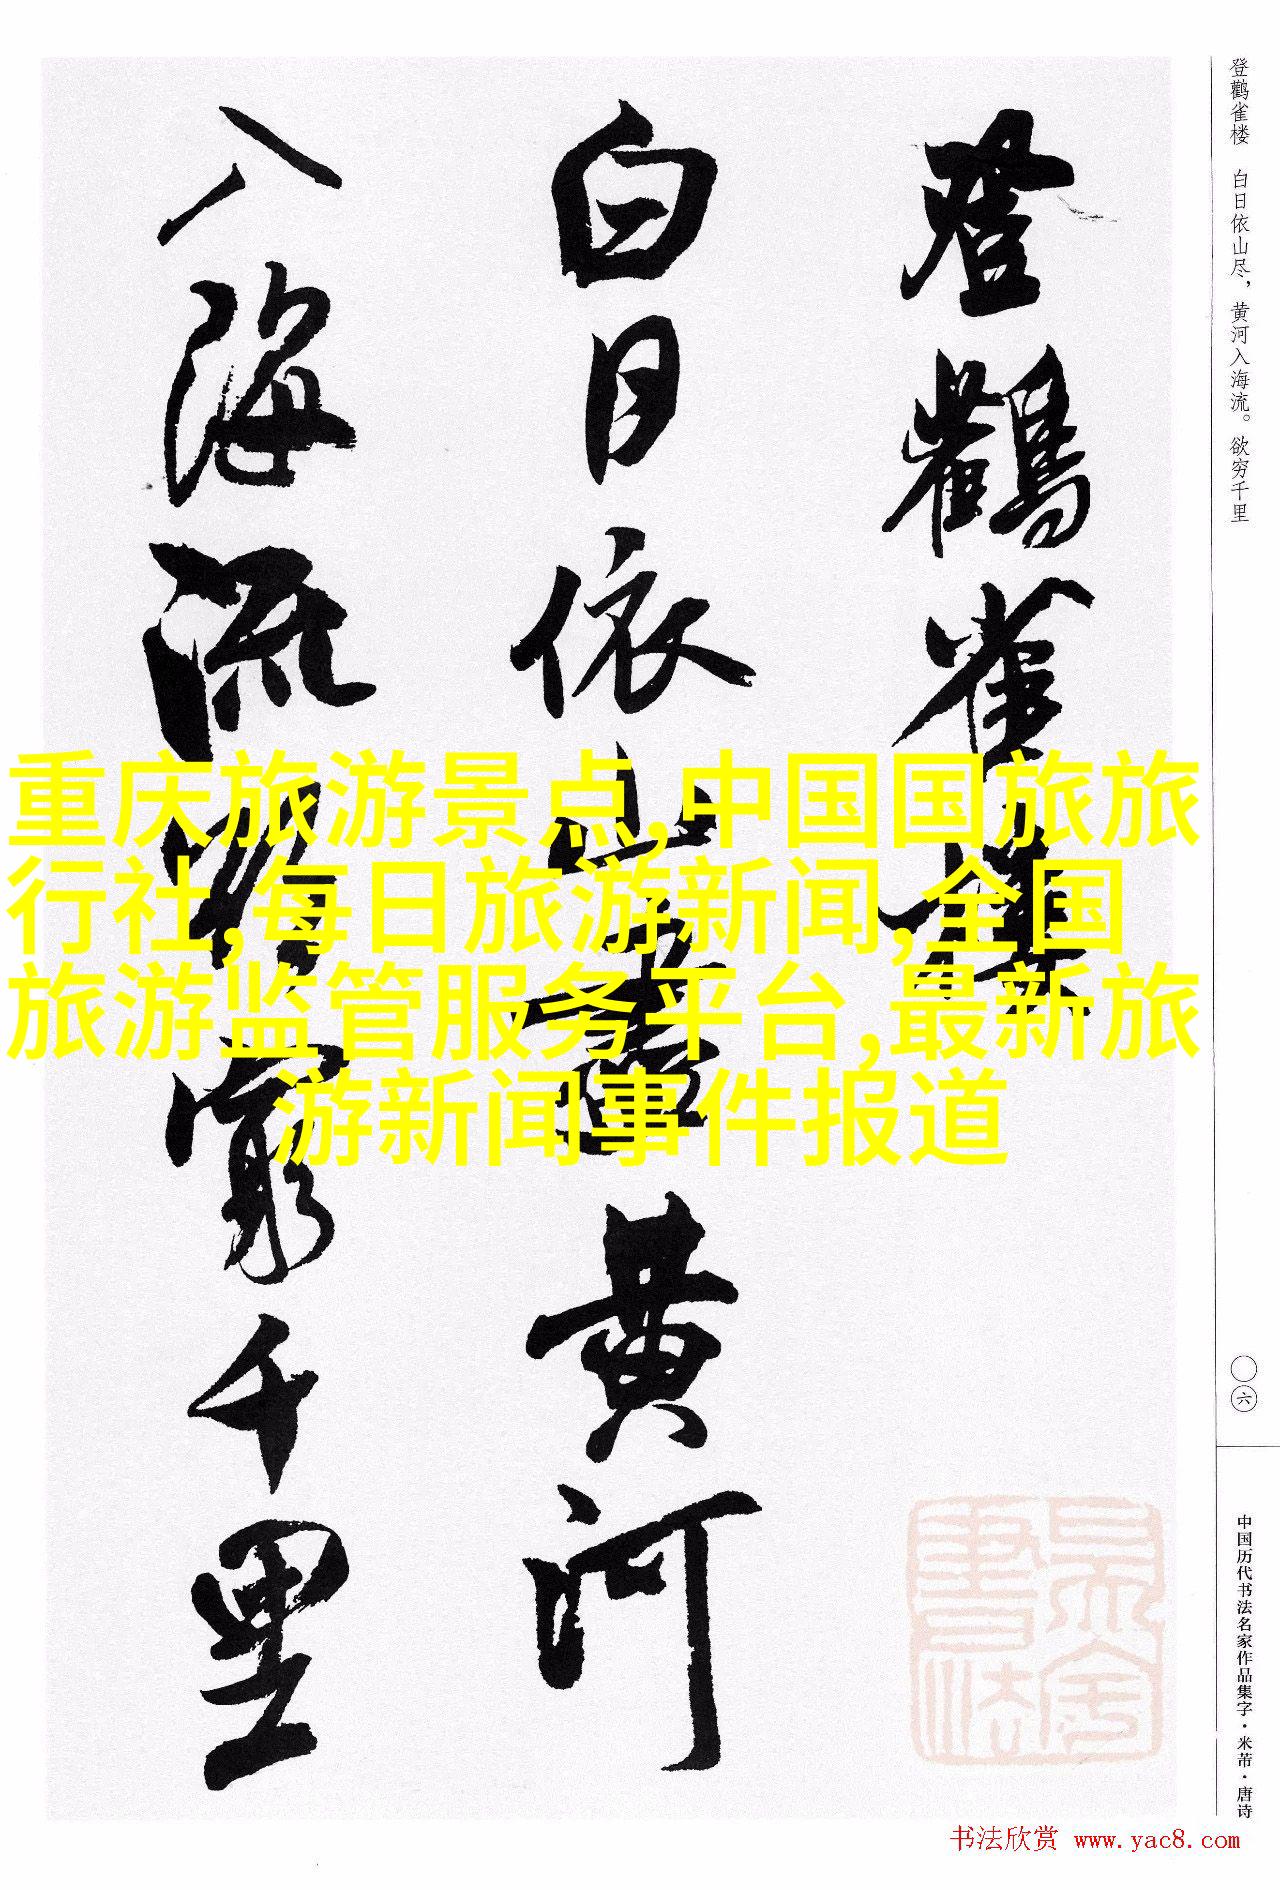 登鸛雀樓
白日依山盡黃河
入海流欲窮千里
登鹳雀楼 白日依山尽，黄河入海流。欲穷千里
〇六
中国历代书法名家作品集字·米芾·唐诗
重庆旅游景点,中国国旅旅
行社,每日旅游新闻,全国
旅游监管服务平台,最新旅
游新闻事件报道
书法欣赏 www.yac8.com